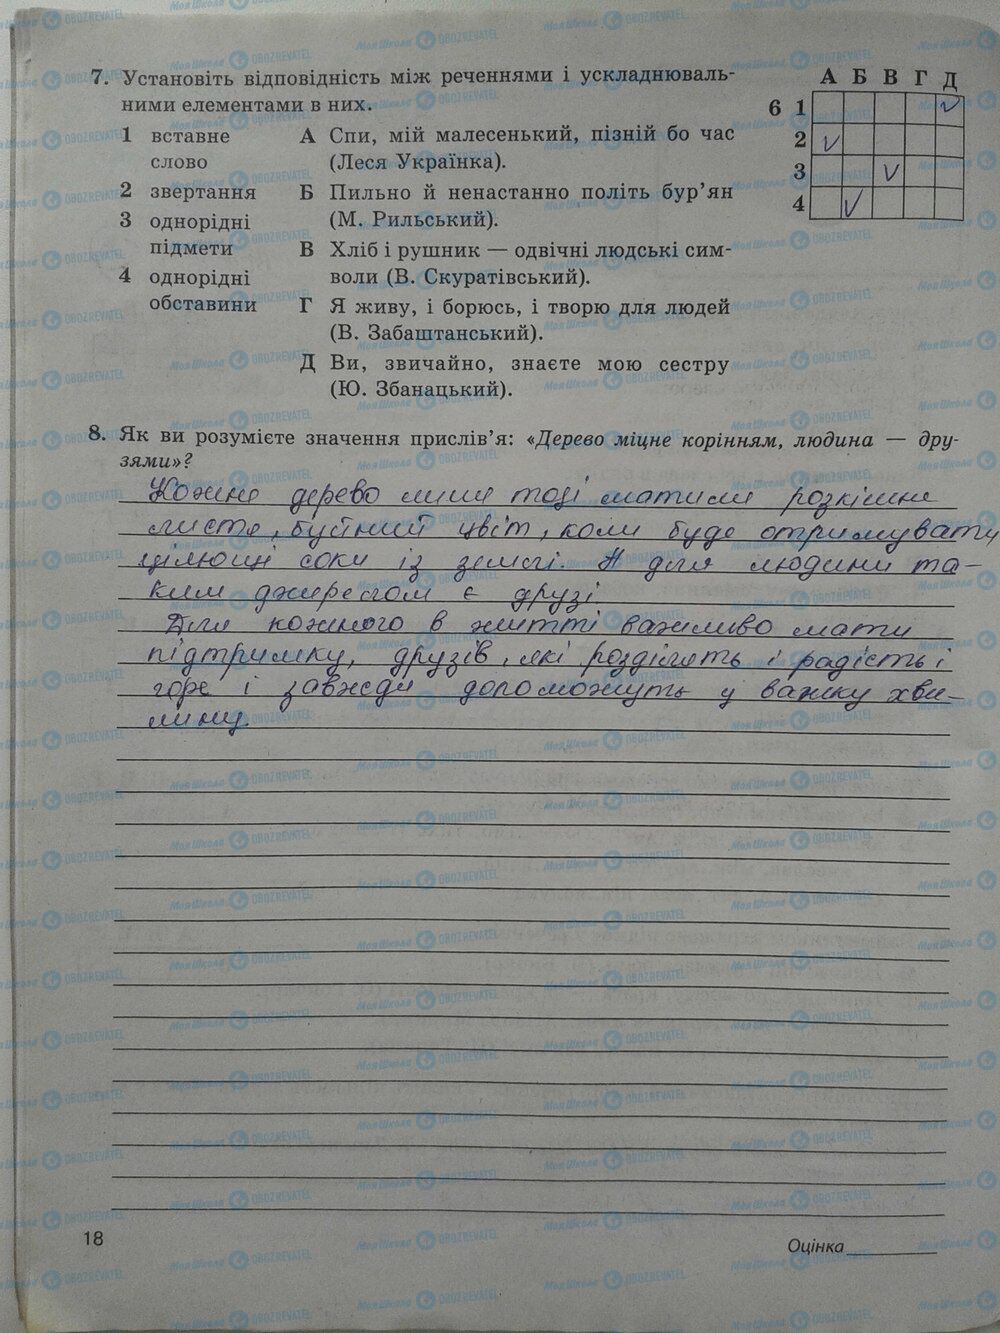 7. Установіть відповідність між реченнями і ускладнюваль-
ними елементами в них.
А Б В Г Д
6 1
2
3
4
1 вставне
слово
2 звертання
3 однорідні
підмети
4 однорідні
обставини
А Спи, мій малесенький, пізній бо час
(Леся Українка).
Б Пильно й ненастанно політь бур'ян
(М. Рильський).
В Хліб і рушник — одвічні людські сим-
воли (В. Скуратівський).
Г Я живу, і борюсь, і творю для людей
(В. Забаштанський).
Д Ви, звичайно, знаєте мою сестру
(Ю. Збанацький).
8. Як ви розумієте значення прислів'я: «Дерево міцне корінням, людина — дру-
зями»?
Кожне дерево лиш тоді матиме розкішне
листя, буйний цвіт, коли буде отримувати
цілющі соки із землі. А для людини та-
ким джерелом є друзі.
Для кожного в житті важливо мати
підтримку, друзів, які розділять і радість і
горе і завжди допоможуть у важку хви-
лину.
18
Оцінка
МояШкола OBOZREVATEL